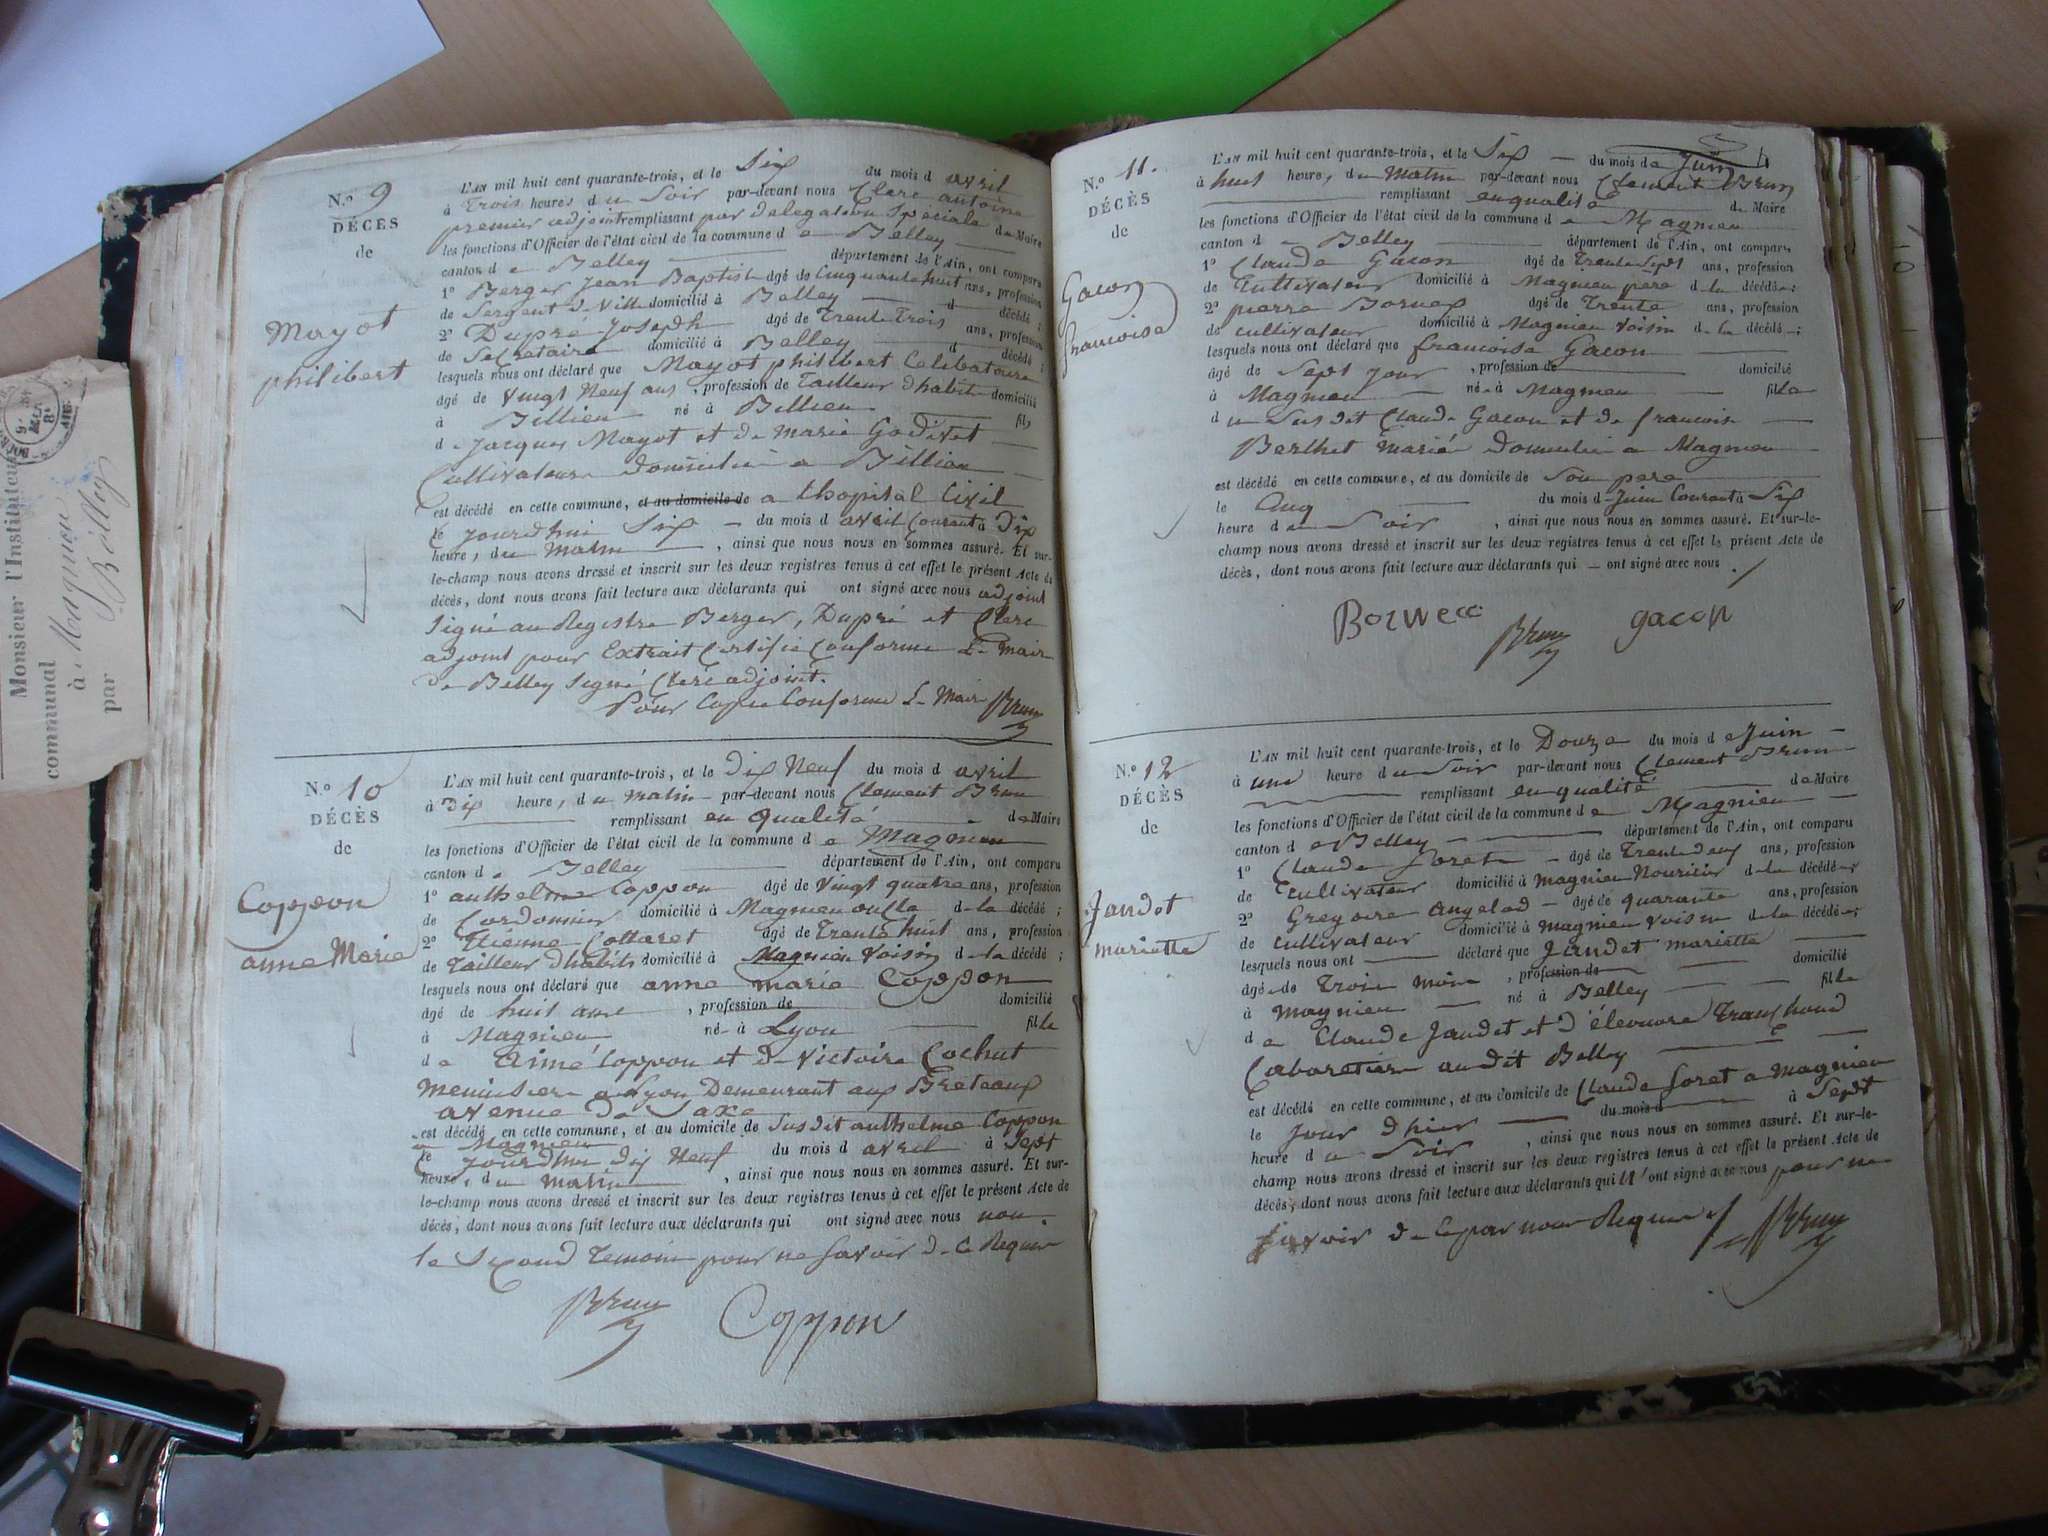 N.º 9
DÉCÈS
de
Mayot
philibert
L'AN mil huit cent quarante-trois, et le Six du mois d avril
à Trois heures du Soir par-devant nous Clerc antoine
premier adjoint remplissant par délégation Spéciale de Maire
les fonctions d'Officier de l'état civil de la commune de Belley
canton de Belley département de l'Ain, ont comparu
1º Berger Jean Baptiste âgé de Cinquante huit ans, profession
de Sergent de Ville domicilié à Belley d décédé ;
2º Dupré Joseph âgé de Trente Trois ans, profession
de Secretaire domicilié à Belley d décédé ;
lesquels nous ont déclaré que Mayot philibert Celibataire
âgé de vingt Neuf ans, profession de Tailleur d'habits domicilié
à Billieu né à Billieu fils
de Jacques Mayot et de Marie Godivet
Cultivateurs domiciliés à Billieu
est décédé en cette commune, et au domicile de a lhopital Civil
le jourdhui Six du mois d avril Courant à Dix
heure, du matin, ainsi que nous nous en sommes assuré. Et sur-
le-champ nous avons dressé et inscrit sur les deux registres tenus à cet effet le présent Acte de
décès, dont nous avons fait lecture aux déclarants qui ont signé avec nous adjoint
Signé au Registre Berger, Dupré et Clerc
adjoint pour Extrait Certifié Conforme Le Maire
de Belley Signé Clerc adjoint.
Pour Copie Conforme Le Maire Brun
N.º 10
DÉCÈS
de
Coppon
anne Marie
L'AN mil huit cent quarante-trois, et le dix Neuf du mois d avril
à Dix heure, du matin par-devant nous Clement Brun
remplissant en qualité de Maire
les fonctions d'Officier de l'état civil de la commune de Magnieu
canton de Belley département de l'Ain, ont comparu
1º anthelme Coppon âgé de vingt quatre ans, profession
de Cordonnier domicilié à Magnieu oncle de la décédé ;
2º Etienne Cottaret âgé de Trente huit ans, profession
de Tailleur d'habits domicilié à Magnieu Voisin de la décédé ;
lesquels nous ont déclaré que anne marie Coppon
âgé de huit ans, profession de domicilié
à Magnieu né à Lyon fille
de Aimé Coppon et de Victoire Cochut
Menuisier a Lyon Demeurant aux Breteaux
avenue de Saxe
est décédé en cette commune, et au domicile de Susdit anthelme Coppon
a Magnieu
le jourdhui dix Neuf du mois d avril à Sept
heure, du matin, ainsi que nous nous en sommes assuré. Et sur-
le-champ nous avons dressé et inscrit sur les deux registres tenus à cet effet le présent Acte de
décès, dont nous avons fait lecture aux déclarants qui ont signé avec nous non
le Second Temoin pour ne Savoir de ce Requis
Brun Coppon
N.º 11.
DÉCÈS
de
Gacon
francoise
4
L'AN mil huit cent quarante-trois, et le Six du mois de Juin
à huit heure, du Matin par-devant nous Clement Brun
remplissant en qualité de Maire
les fonctions d'Officier de l'état civil de la commune de Magnieu
canton de Belley département de l'Ain, ont comparu
1º Claude Gacon âgé de Trente Sept ans, profession
de Cultivateur domicilié à Magnieu père de la décédé ;
2º pierre Bornex âgé de Trente ans, profession
de cultivateur domicilié à Magnieu Voisin de la décédé ;
lesquels nous ont déclaré que francoise Gacon
âgé de Sept jour, profession de domicilié
à Magnieu né à Magnieu fille
du Susdit Claude Gacon et de francoise
Berthet mariés Domiciliés a Magnieu
est décédé en cette commune, et au domicile de Son pere
le Cinq du mois de Juin Courant à Six
heure du Soir, ainsi que nous nous en sommes assuré. Et sur-le-
champ nous avons dressé et inscrit sur les deux registres tenus à cet effet le présent Acte de
décès, dont nous avons fait lecture aux déclarants qui ont signé avec nous.
Brun gacon
N.º 12
DÉCÈS
de
Jandet
mariette
L'AN mil huit cent quarante-trois, et le Douze du mois de Juin
à une heure du Soir par-devant nous Clement Brun
remplissant en qualité de Maire
les fonctions d'Officier de l'état civil de la commune de Magnieu
canton de Belley département de l'Ain, ont comparu
1º Claude Goret âgé de Trente deux ans, profession
de Cultivateur domicilié à Magnieu Nouricier de la décédé
2º Gregoire Angelod âgé de quarante ans, profession
de cultivateur domicilié à magnieu Voisin de la décédé ;
lesquels nous ont déclaré que Jandet mariette
âgé de Trois mois, profession de domicilié
à magnieu né à Belley fille
de Claude Jandet et d'éleonore
Cabaretiers audit Belley
est décédé en cette commune, et au domicile de Claude Goret a Magnieu
le jour d'hier du mois d à Sept
heure du Soir, ainsi que nous nous en sommes assuré. Et sur-le-
champ nous avons dressé et inscrit sur les deux registres tenus à cet effet le présent Acte de
décès, dont nous avons fait lecture aux déclarants qui n'ont signé avec nous pour ne
Savoir de ce par nous Requis Brun
Monsieur l'Instituteur
communal
à Magnieu
par Belley